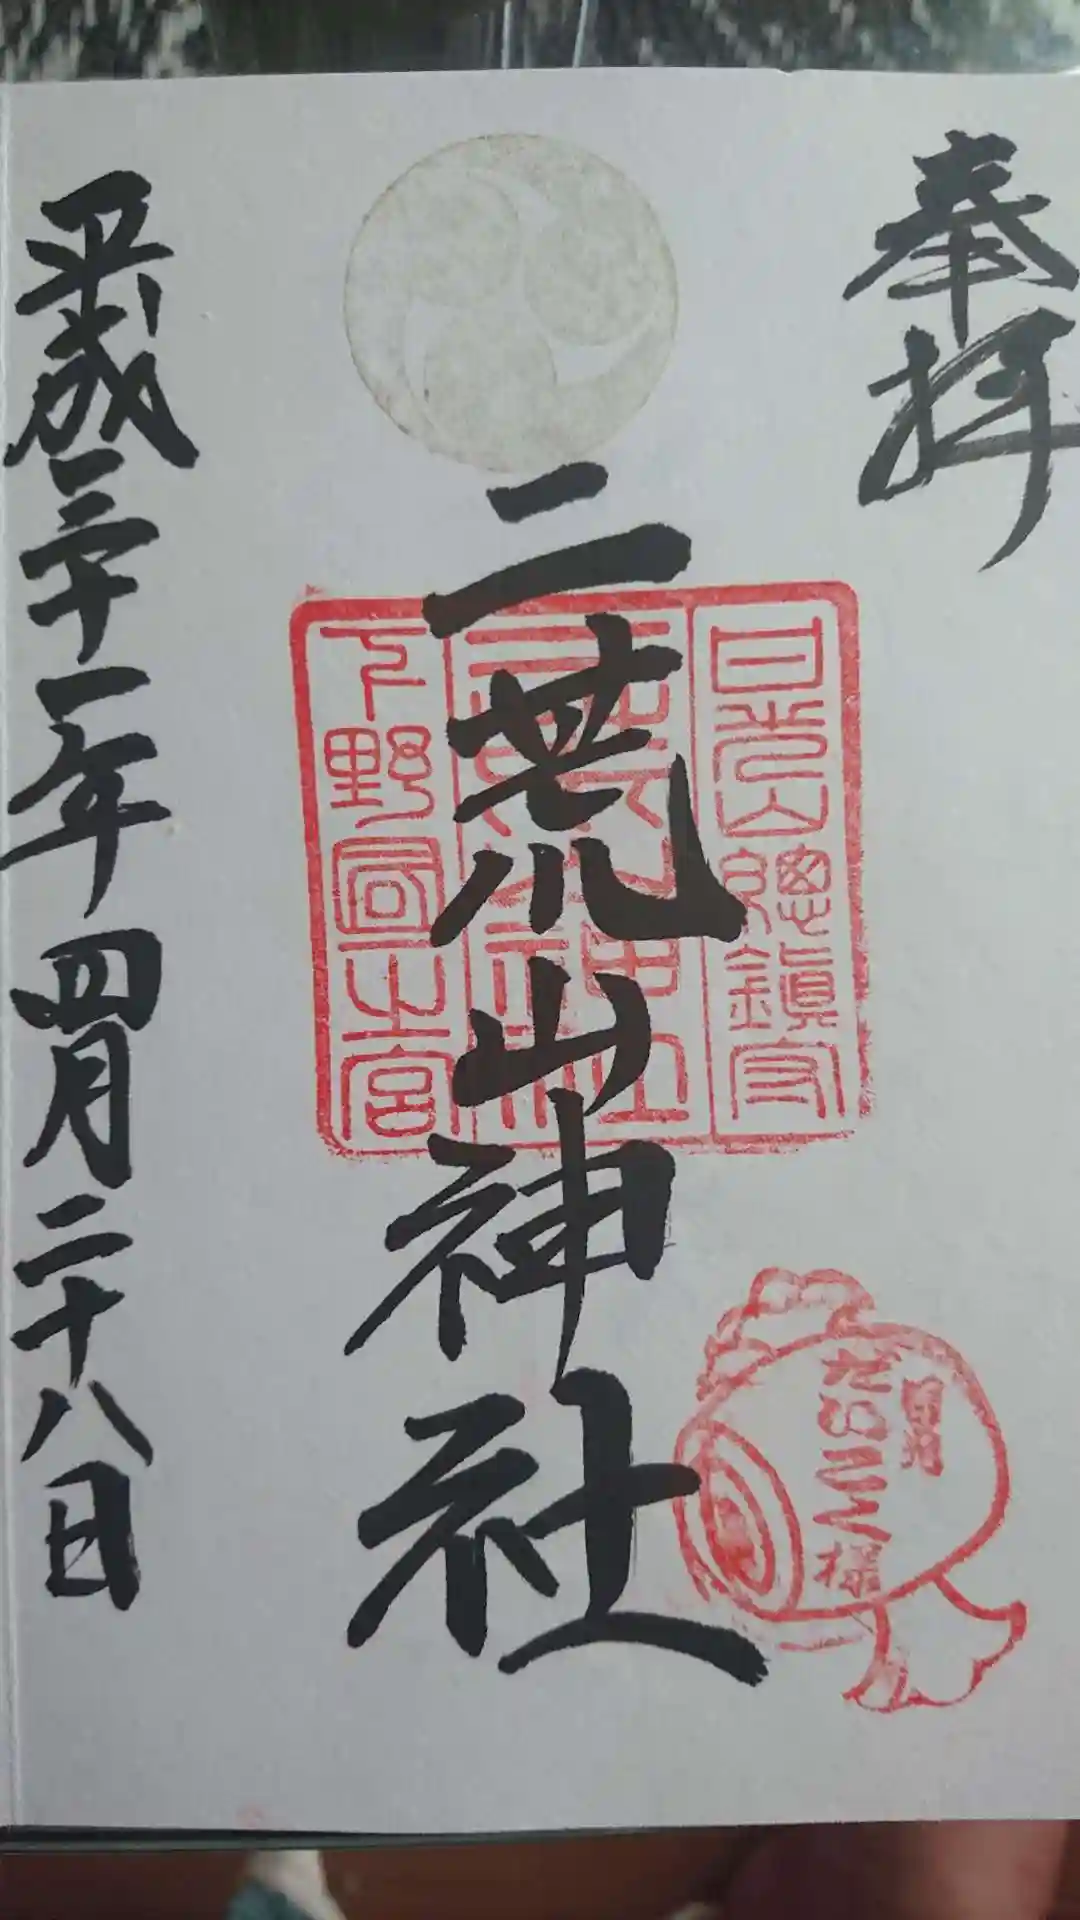 奉拝
日光山總鎮守
二荒山神社
下野國一之宮
二荒山神社
日光
だいこく様
平成三十一年四月二十八日